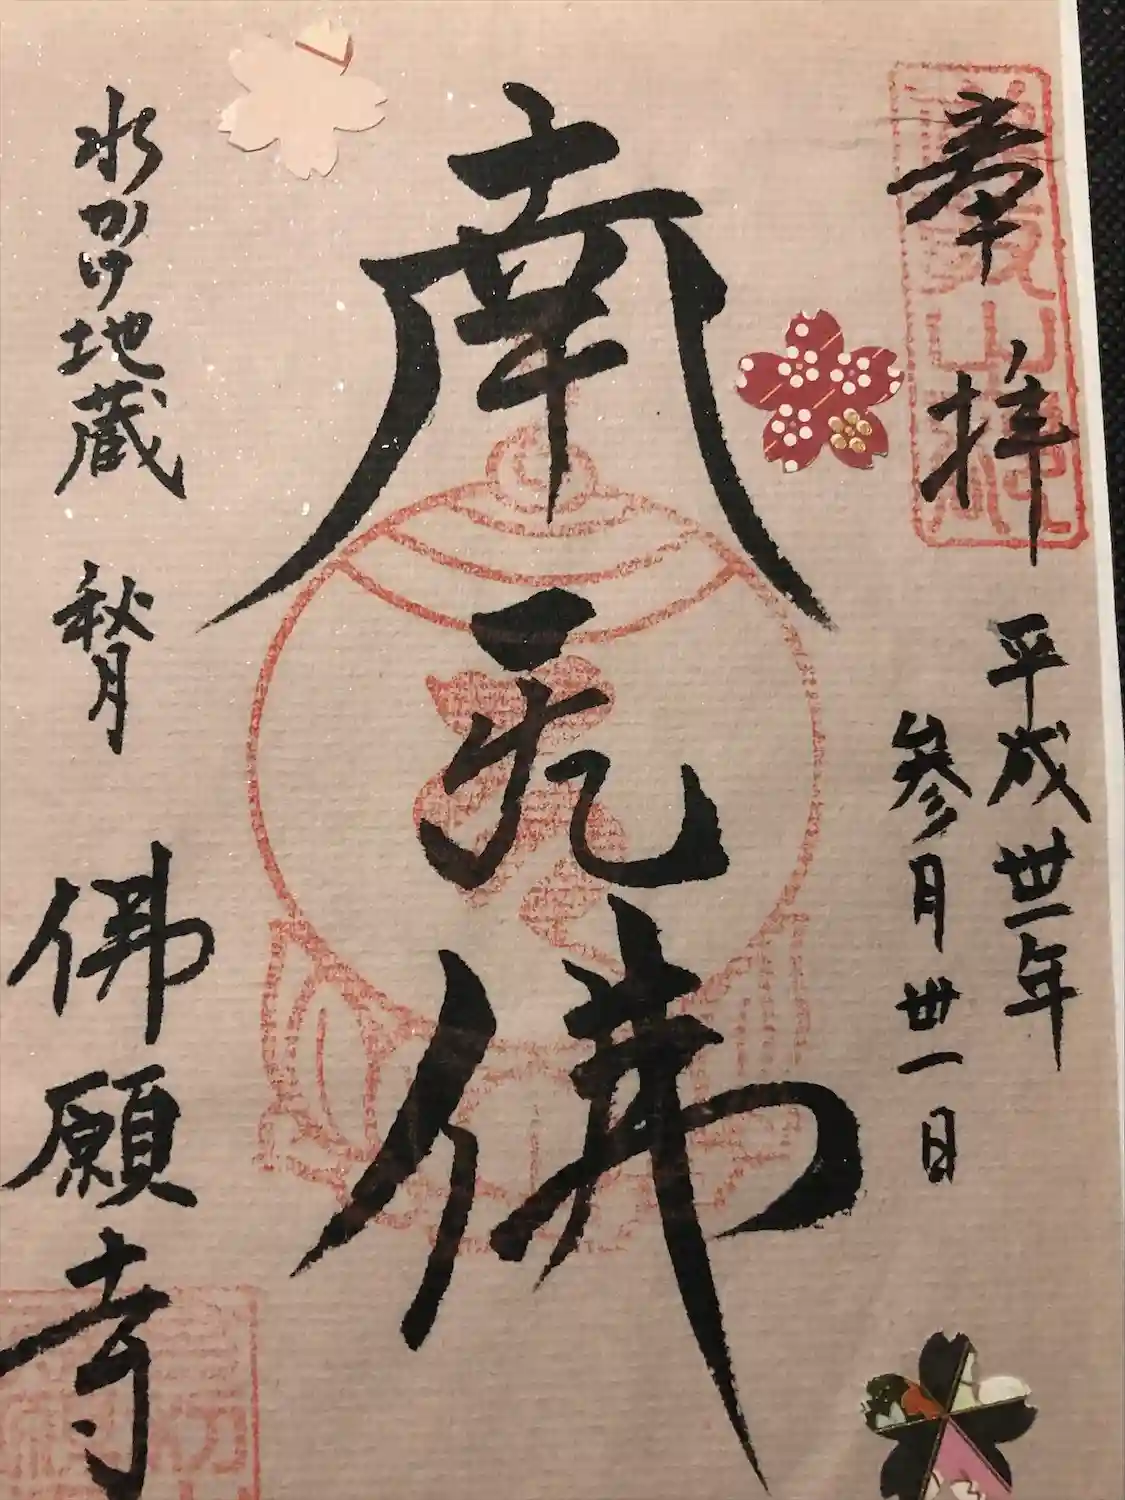 奉拝
平成卅一年
参月卅一日
南无佛
水かけ地蔵 秋月 佛願寺